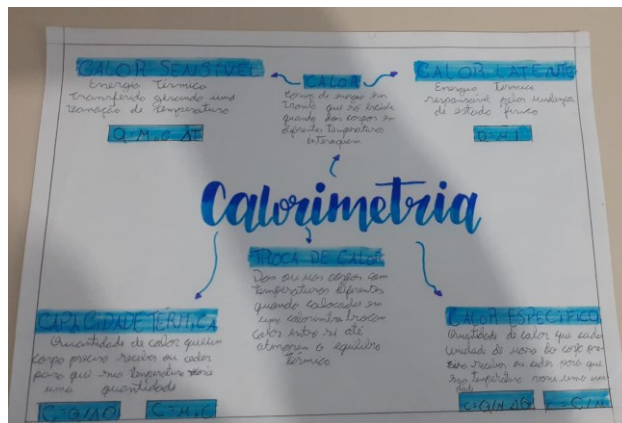 CALOR SENSÍVEL
Energia Térmica
transferida gerando uma
variação de temperatura
Q=M.C.ΔT
CALOR
forma de energia em
que só existe
quando dois corpos em
diferentes temperaturas
interagem
CALOR LATENTE
Energia Térmica
responsável pelas mudanças
de estado físico
Q=M.L
Calorimetria
TROCA DE CALOR
Dois ou mais corpos com
temperaturas diferentes
quando colocados em
um calorímetro trocam
calor entre si até
atingirem o equilíbrio
térmico
CAPACIDADE TÉRMICA
Quantidade de calor que um
corpo precisa receber ou ceder
para que sua temperatura varie
uma quantidade
C=Q/ΔΘ
C=M.C
CALOR ESPECÍFICO
Quantidade de calor que cada
unidade de massa do corpo pre-
receber ou ceder para que
sua temperatura varie uma
C=Q/M.ΔΘ
C=C/M